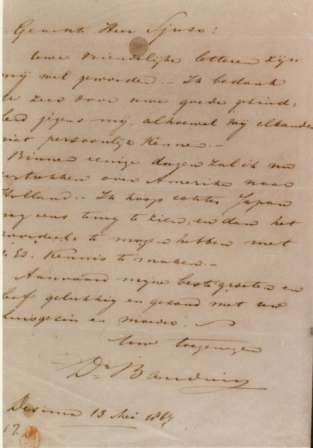 Geeerde Heer Sijuso!
Uwe vriendelijke letteren zijn
mij wel geworden. Ik bedank
U zeer voor uwe goede gezind-
heid jegens mij, alhoewel wij elkander
niet persoonlijk kennen.
Binnen eenige dagen zal ik nu
vertrekken over Amerika naar
Holland. Ik hoop echter Japan
nog eens terug te zien, en dan het
voordeel te mogen hebben met
U Ed. kennis te maken.
Aanvaard mijne beste groeten en
leef gelukkig en gezond met uw
huisgezin en
Uw toegenegen
Dr Bauduin
Desima 13 Mei 1867